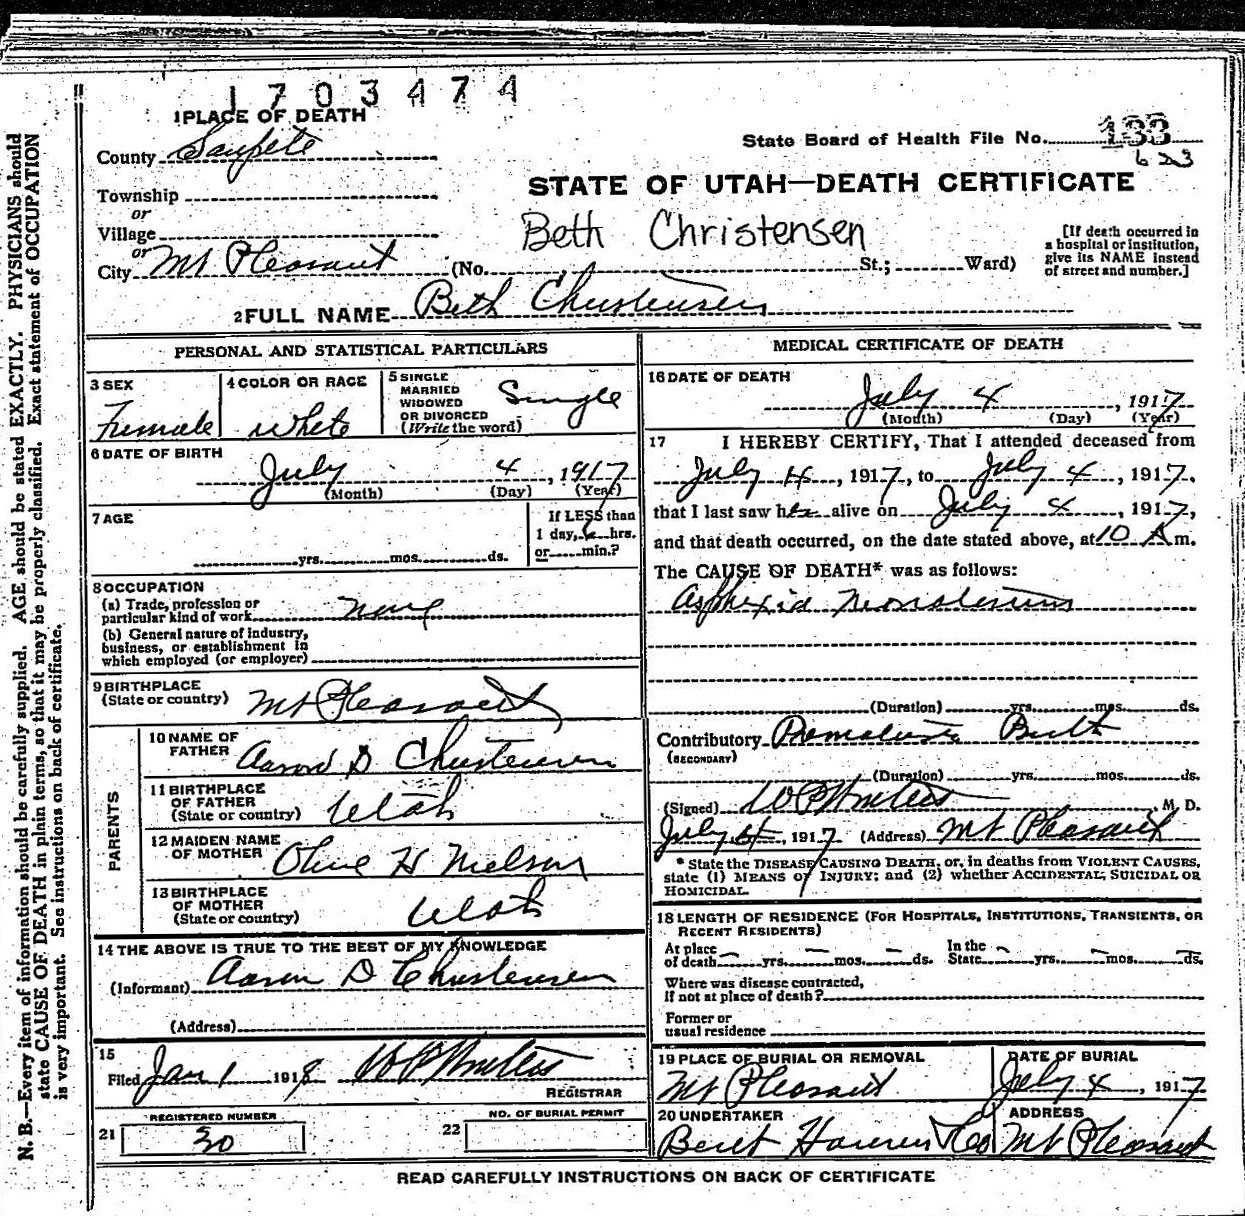 1703474
1 PLACE OF DEATH
State Board of Health File No. 133
623
County Sanpete
Township
STATE OF UTAH—DEATH CERTIFICATE
or
Village
Beth Christensen
[If death occurred in
a hospital or institution,
give its NAME instead
of street and number.]
or
City Mt Pleasant (No. St.; Ward)
2 FULL NAME Beth Christensen
PERSONAL AND STATISTICAL PARTICULARS
3 SEX
Female
4 COLOR OR RACE
White
5 SINGLE
MARRIED
WIDOWED
OR DIVORCED
(Write the word)
Single
6 DATE OF BIRTH
July 4, 1917
(Month) (Day) (Year)
7 AGE
yrs. mos. ds.
If LESS than
1 day, hrs.
or min.?
8 OCCUPATION
(a) Trade, profession or
particular kind of work none
(b) General nature of industry,
business, or establishment in
which employed (or employer)
9 BIRTHPLACE
(State or country) Mt Pleasant
PARENTS
10 NAME OF
FATHER Aaron D Christensen
11 BIRTHPLACE
OF FATHER
(State or country) Utah
12 MAIDEN NAME
OF MOTHER Olive H Nielson
13 BIRTHPLACE
OF MOTHER
(State or country) Utah
14 THE ABOVE IS TRUE TO THE BEST OF MY KNOWLEDGE
(Informant) Aaron D Christensen
(Address)
15
Filed Jan 1 1918
REGISTRAR
REGISTERED NUMBER
21 30
NO. OF BURIAL PERMIT
22
MEDICAL CERTIFICATE OF DEATH
16 DATE OF DEATH
July 4, 1917
(Month) (Day) (Year)
17 I HEREBY CERTIFY, That I attended deceased from
July 4, 1917, to July 4, 1917,
that I last saw her alive on July 4, 1917,
and that death occurred, on the date stated above, at 10 A m.
The CAUSE OF DEATH* was as follows:
Asphexia Neonatorum
(Duration) yrs. mos. ds.
Contributory Premature Birth
(SECONDARY)
(Duration) yrs. mos. ds.
(Signed) M. D.
July 4, 1917 (Address) Mt Pleasant
* State the DISEASE CAUSING DEATH, or, in deaths from VIOLENT CAUSES,
state (1) MEANS OF INJURY; and (2) whether ACCIDENTAL, SUICIDAL OR
HOMICIDAL.
18 LENGTH OF RESIDENCE (FOR HOSPITALS, INSTITUTIONS, TRANSIENTS, OR
RECENT RESIDENTS)
At place
of death yrs. mos. ds.
In the
State yrs. mos. ds.
Where was disease contracted,
If not at place of death?
Former or
usual residence
19 PLACE OF BURIAL OR REMOVAL
Mt Pleasant
DATE OF BURIAL
July 4, 1917
20 UNDERTAKER
ADDRESS
Mt Pleasant
READ CAREFULLY INSTRUCTIONS ON BACK OF CERTIFICATE
N. B.—Every item of information should be carefully supplied. AGE should be stated EXACTLY. PHYSICIANS should
state CAUSE OF DEATH in plain terms, so that it may be properly classified. Exact statement of OCCUPATION
is very important. See instructions on back of certificate.